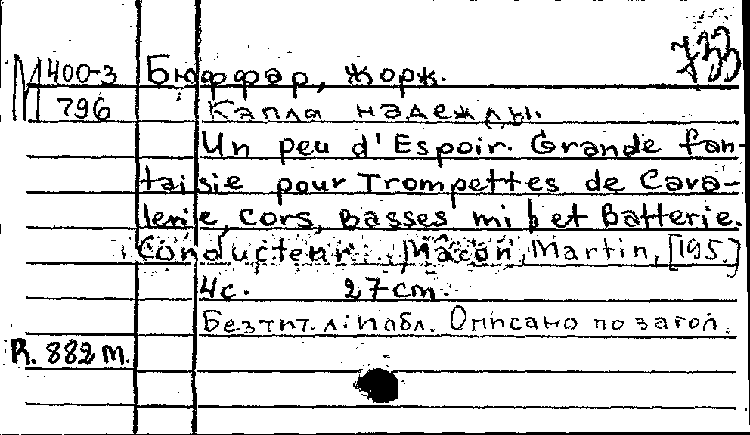 733
М 400-3 Бюффар, Жорж.
796 Капля надежды.
Un peu d'Espoir. Grande fan-
taisie pour Trompettes de Cava-
lerie, Cors, Basses mi b et Batterie.
Conducteur. Macon, Martin, [195.]
4с. 27 cm.
Без тит. л. и обл. Описано по загол.
R. 882 m.